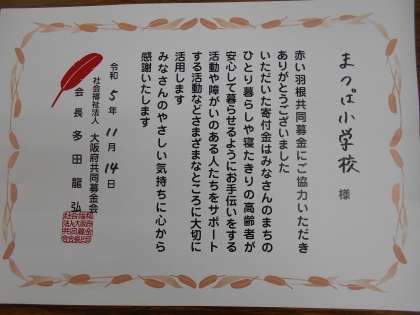 まつば小学校 様
赤い羽根共同募金にご協力いただき
ありがとうございました
いただいた寄付金はみなさんのまちの
ひとり暮らしや寝たきりの高齢者が
安心して暮らせるようにお手伝いをする
活動や障がいのある人たちをサポート
する活動などさまざまなところに大切に
活用します
みなさんのやさしい気持ちに心から
感謝いたします
令和5年11月14日
社会福祉法人 大阪府共同募金会
会長 多田龍弘